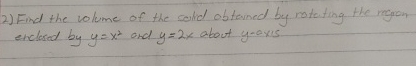 2) Find the volume of the solid obtained by rotating the region
enclosed by y = x² and y = 2x about y-axis